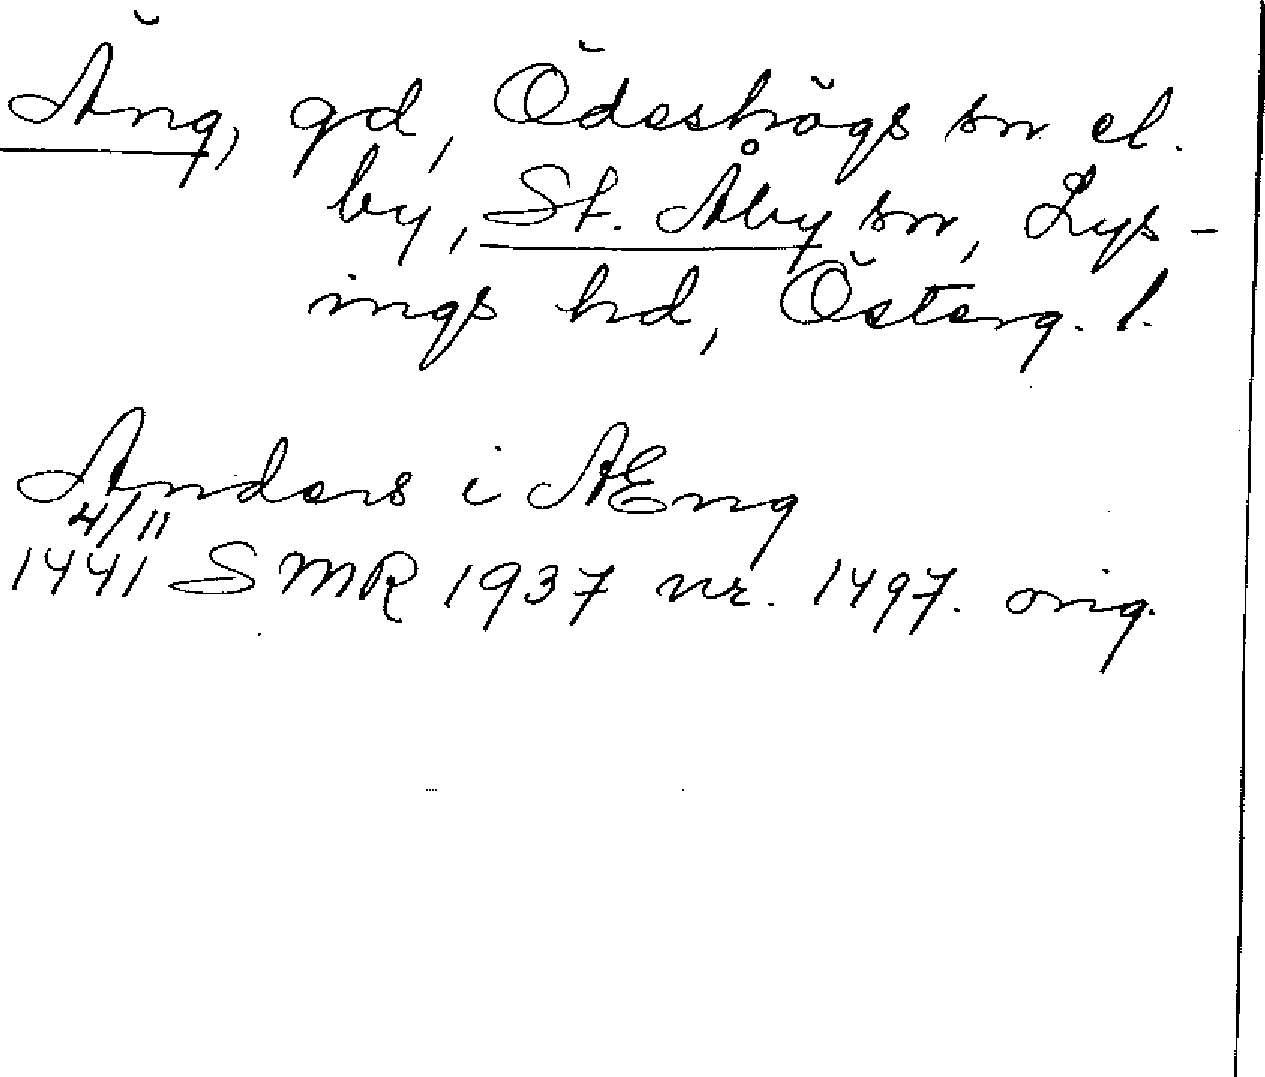 Äng, gd, Ödeshögs sn el.
by, St. Åby sn, Lys-
ings hd, Österg. l.
Anders i AEng
4/11
1441 SMR 1937 nr. 1497. orig.